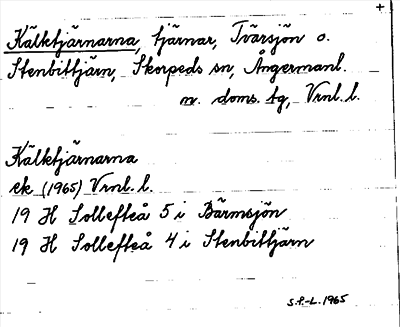 +
Kälktjärnarna, tjärnar, Tvärsjön o.
Stenbittjärn, Skorpeds sn, Ångermanl.
n. doms. tg, Vrnl. l.
Kälktjärnarna
ek (1965) Vrnl. l.
19 H Sollefteå 5 i Bärmsjön
19 H Sollefteå 4 i Stenbittjärn
S.P-L. 1965